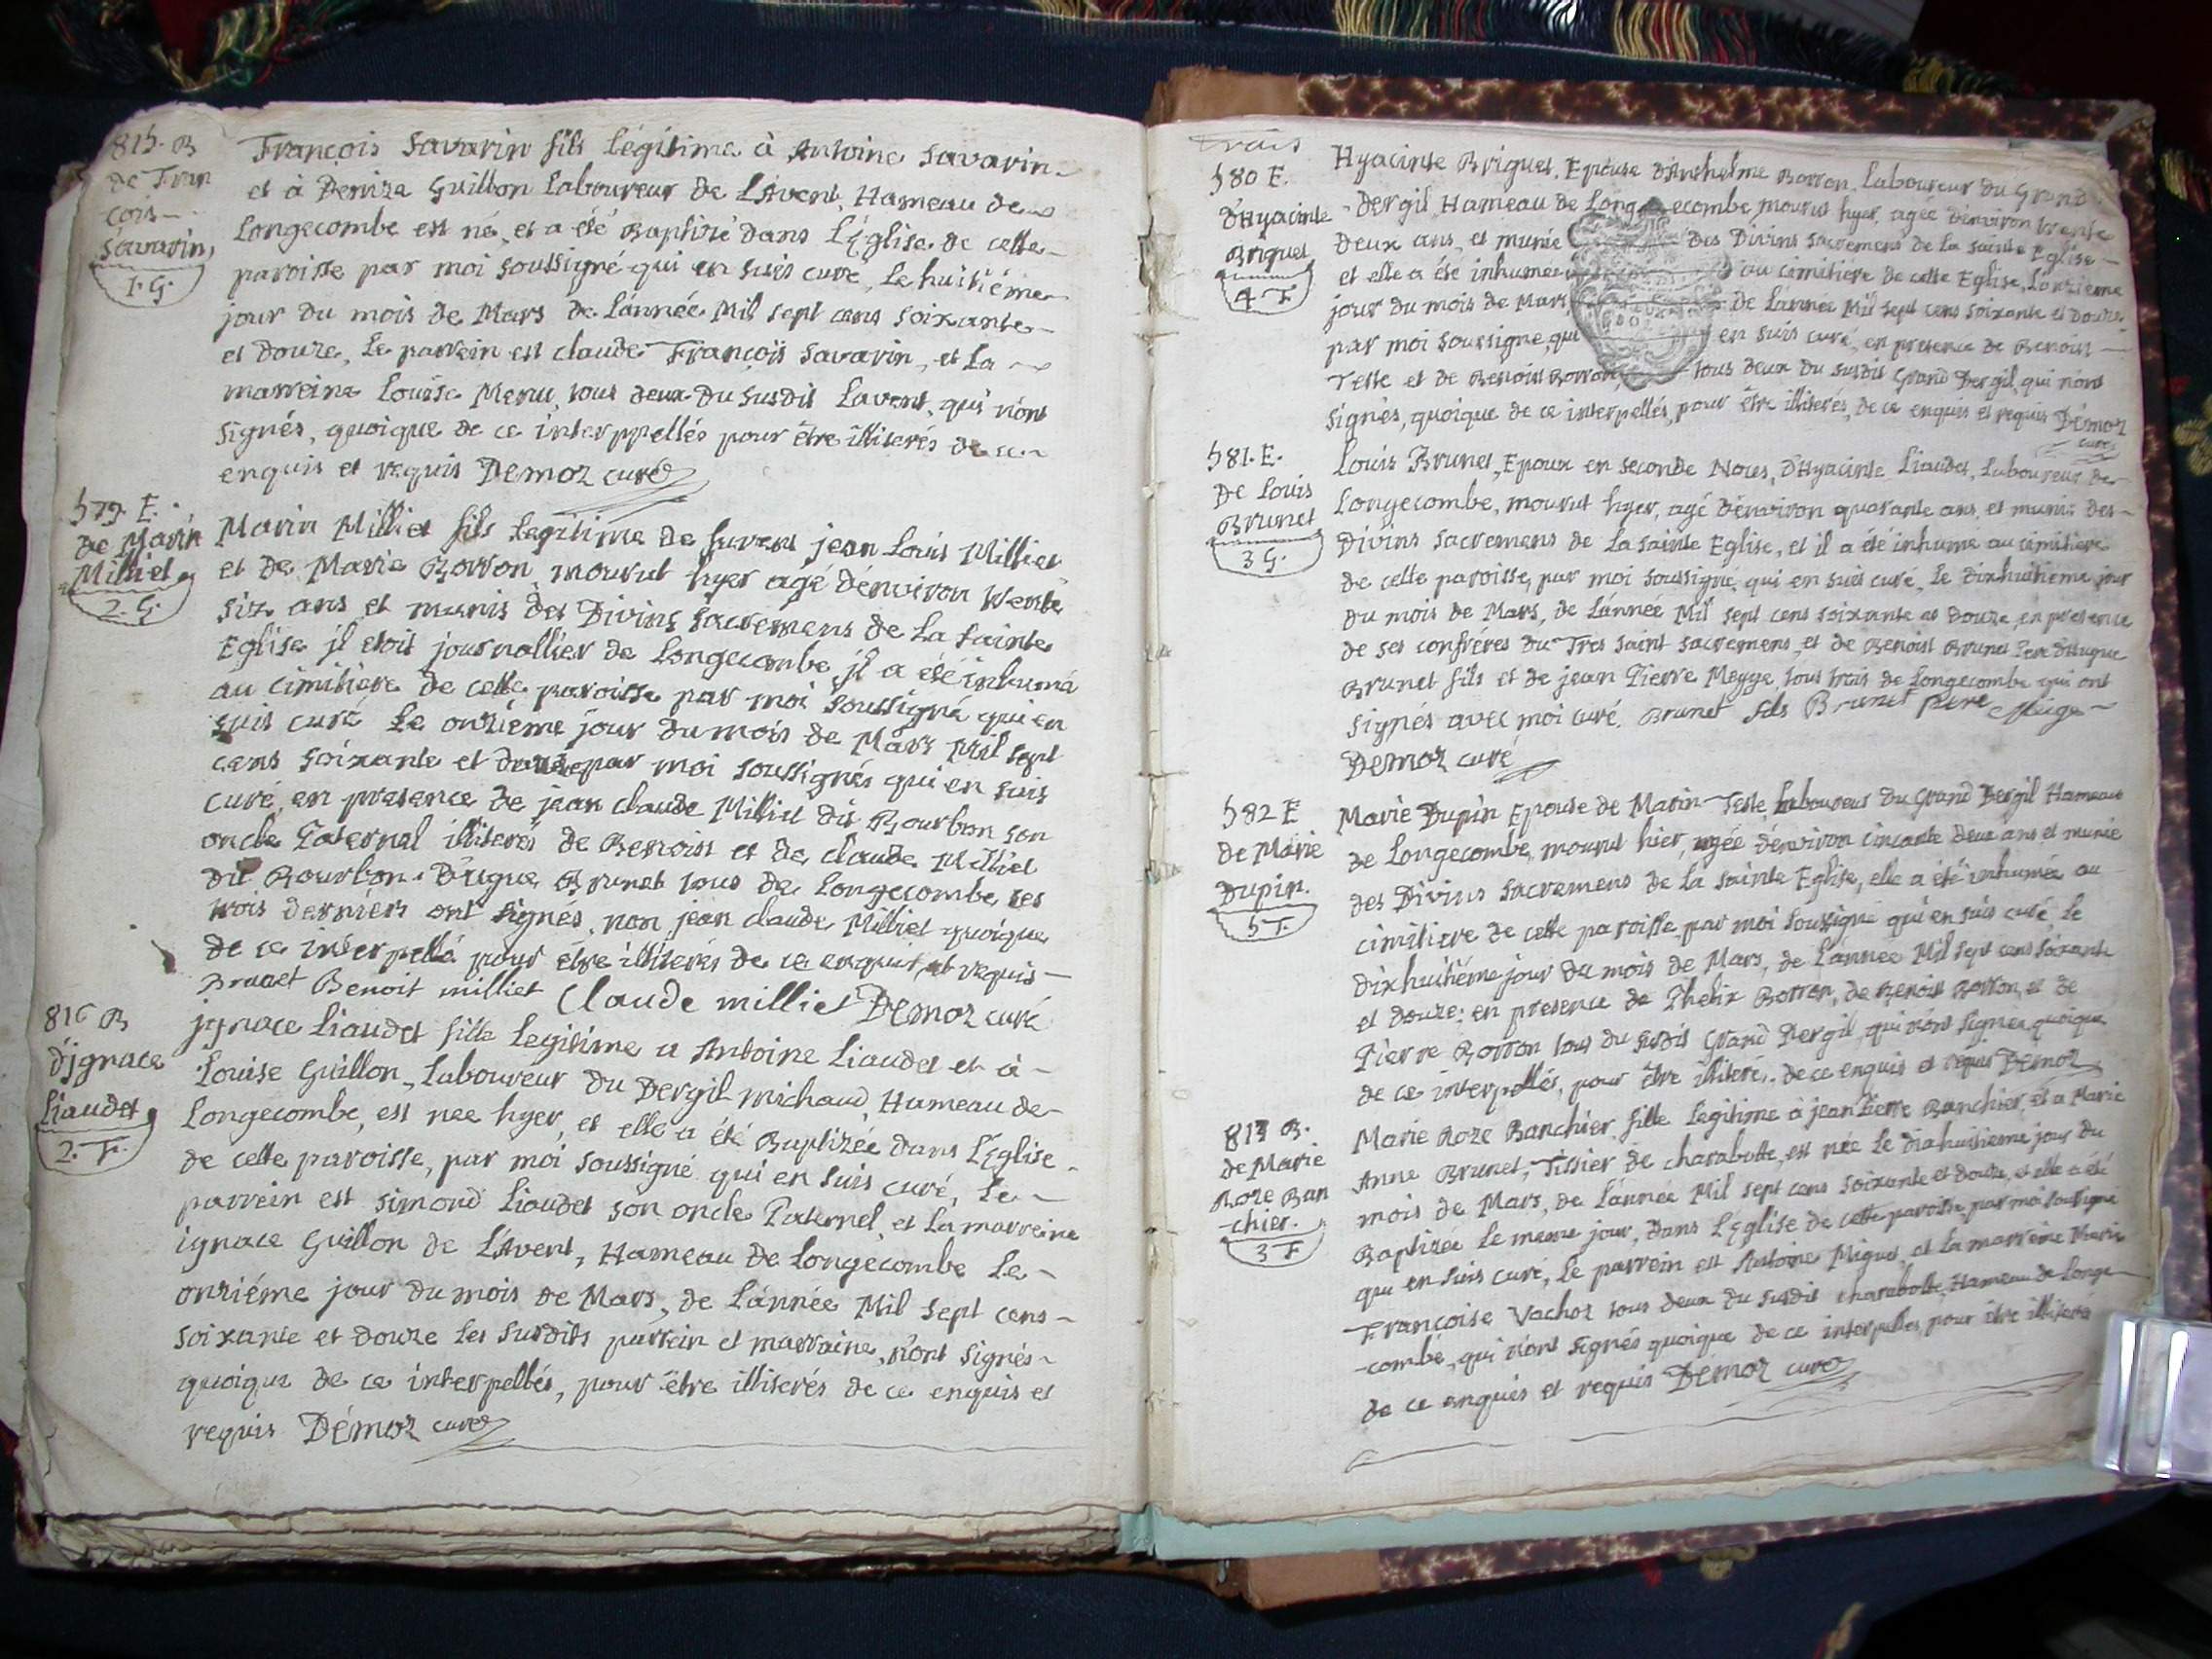 815. B
de Fran
cois
Savarin
1. G.
François Savarin fils légitime à Antoine Savarin
et à Denize Guillon Laboureur de L'Avent, Hameau de
Longecombe est né, et a été Baptizé dans L'Eglise de cette
paroisse par moi soussigné qui en suis curé, Le huitiéme
jour du mois de Mars de L'année Mil sept cens soixante
et douze, Le parrein est claude François Savarin, et La
marreine Louise Menu, tous deux du susdit Lavent, qui n'ont
signés, quoique de ce interppellés pour être illiterés de ce
enquis et requis Demoz curé
579. E.
de Marin
Milliet
2. G.
Marin Milliet fils Legitime de feu jean Louis Milliet
et de Marie Borron, mourut hyer agé d'environ trente
six ans et munis des Divins sacremens de La sainte
Eglise il etoit journallier de Longecombe, il a été inhumé
au cimitiere de cette paroisse par moi soussigné qui en
suis curé Le onziéme jour du mois de Mars Mil sept
cens soixante et douze par moi soussignés qui en suis
curé, en presence de jean claude Milliet dit Bourbon son
oncle Paternel illiterés de Benoist et de claude Milliet
dit Bourbon. D'ugue Brunet tous de Longecombe, Les
trois derniers ont signés, non jean claude Milliet quoique
de ce interpellé pour être illiterés de ce enquis, et requis
Brunet Benoit milliet Claude milliet Demoz curé
816 B
d'jgnace
Liaudet
2. F.
jgnace Liaudet fille Legitime a Antoine Liaudet et à
Louise Guillon, Laboureur du Dergil michaud, Hameau de
Longecombe, est nee hyer, et elle a été Baptizée dans L'Eglise
de cette paroisse, par moi soussigné qui en suis curé, Le
parrein est simond Liaudet son oncle Paternel, et La marreine
ignace Guillon de L'Avent, Hameau de Longecombe Le
onziéme jour du mois de Mars, de L'année Mil sept cens
soixante et douze Les susdits parrein et marraine, n'ont signés
quoique de ce interpellés, pour être illiterés de ce enquis et
requis Démoz curé
trois
580 E.
d'Hyacinte
Briguet
4. F
Hyacinte Briguet, Epouse d'Anthelme Borron, Laboureur du Grand
Dergil, Hameau de Longecombe mourut hyer, agée d'environ trente
deux ans, et munie des Divins sacremens de La sainte Eglise
et elle a été inhumée au cimitiere de cette Eglise, L'onzieme
jour du mois de Mars de L'année Mil sept cens soixante et douze
par moi soussigné, qui en suis curé, en presence de Benoist
Teste et de Benoist Borron tous deux du susdit Grand Dergil, qui n'ont
signés, quoique de ce interpellés, pour être illiterés, de ce enquis et requis Démoz
curé
581. E.
De Louis
Brunet
3 G.
Louis Brunet, Epoux en seconde Noces, d'Hyacinte Liaudet, Laboureur de
Longecombe, mourut hyer, agé d'environ quarante ans, et munis des
Divins sacremens de La sainte Eglise, et il a été inhumé au cimitiere
de cette paroisse, par moi soussigné, qui en suis curé, Le dixhuitiéme jour
du mois de Mars, de L'année Mil sept cens soixante et douze, en presence
de ses confréres du Tres saint sacremens, et de Benoist Brunet Pere d'Hugue
Brunet fils et de jean Pierre Megge, tous trois de Longecombe qui ont
signés avec moi curé, Brunet fils Brunet pere
Demoz curé
582 E
de Marie
Dupin.
5 F.
Marie Dupin Epouse de Marin Teste, Laboureur du Grand Dergil Hameau
de Longecombe, mourut hier, agée d'environ cincante deux ans et munie
des Divins sacremens de La sainte Eglise, elle a été inhumée au
cimitiere de cette paroisse, par moi soussigné qui en suis curé, Le
dixhuitiéme jour du mois de Mars, de L'année Mil sept cens soixante
et douze; en presence de Phelix Borron, de Benoist Borron, et de
Pierre Borron tous du susdit Grand Dergil, qui n'ont signer quoique
de ce interpellés, pour être illiteré, de ce enquis et requis Demoz
817 B.
de Marie
Roze Ban
-chier.
3 F
Marie Roze Banchier, fille Legitime à jean Pierre Banchier, et a Marie
Anne Brunet, Tissier de charabotte, est née Le dixhuitieme jour du
mois de Mars, de L'année Mil sept cens soixante et douze, et elle a été
Baptizée Le meme jour, dans L'Eglise de cette paroisse, par moi soussigné
qui en suis curé, Le parrein est Antoine Miguet, et La marreine Marie
Françoise Vachoz tous deux du susdit charabotte, Hameau de Longe
-combe, qui n'ont signés quoique de ce interpellés, pour être illiteré
de ce enquis et requis Demoz curé